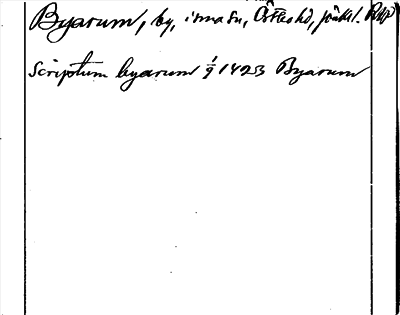 Byarum, by, i m a sn, Östbo hd, Jönk l.
Scriptum byarum 1/9 1423 Byarum